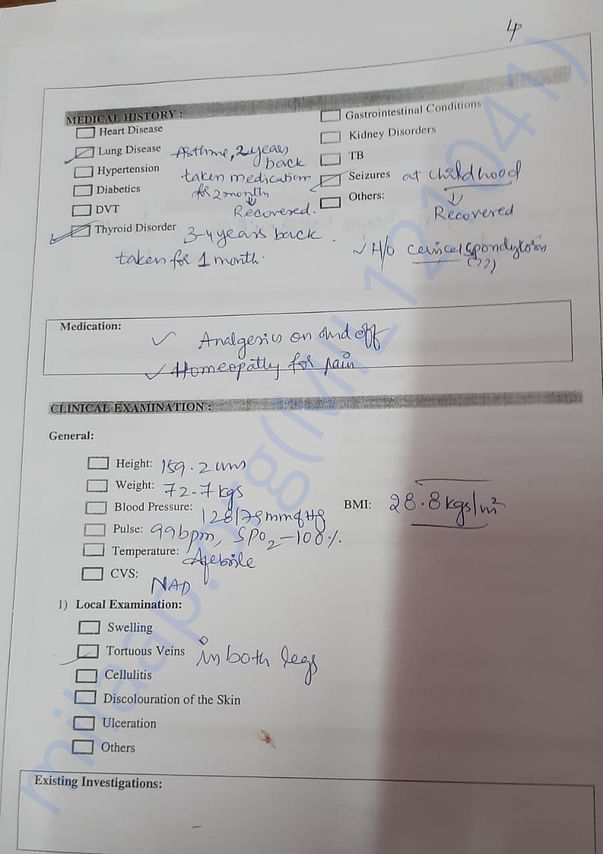 4
MEDICAL HISTORY :
Heart Disease
Gastrointestinal Conditions
Lung Disease Asthma, 2 years back
Kidney Disorders
Hypertension taken medication
TB
Diabetics for 2 month
Seizures at childhood
DVT Recovered.
Others: Recovered
Thyroid Disorder 3-4 years back.
taken for 1 month.
H/o cervical spondylosis
Medication:
Analgesics on and off
Homeopathy for pain
CLINICAL EXAMINATION :
General:
Height: 159.2 cms
Weight: 72.7 kgs
Blood Pressure: 128/75 mmHg
BMI: 28.8 kgs/m²
Pulse: 99 bpm, SPO2 - 100%.
Temperature: Afebrile
CVS: NAD
1) Local Examination:
Swelling
Tortuous Veins in both legs
Cellulitis
Discolouration of the Skin
Ulceration
Others
Existing Investigations:
-
milaap.org(MIL121041)